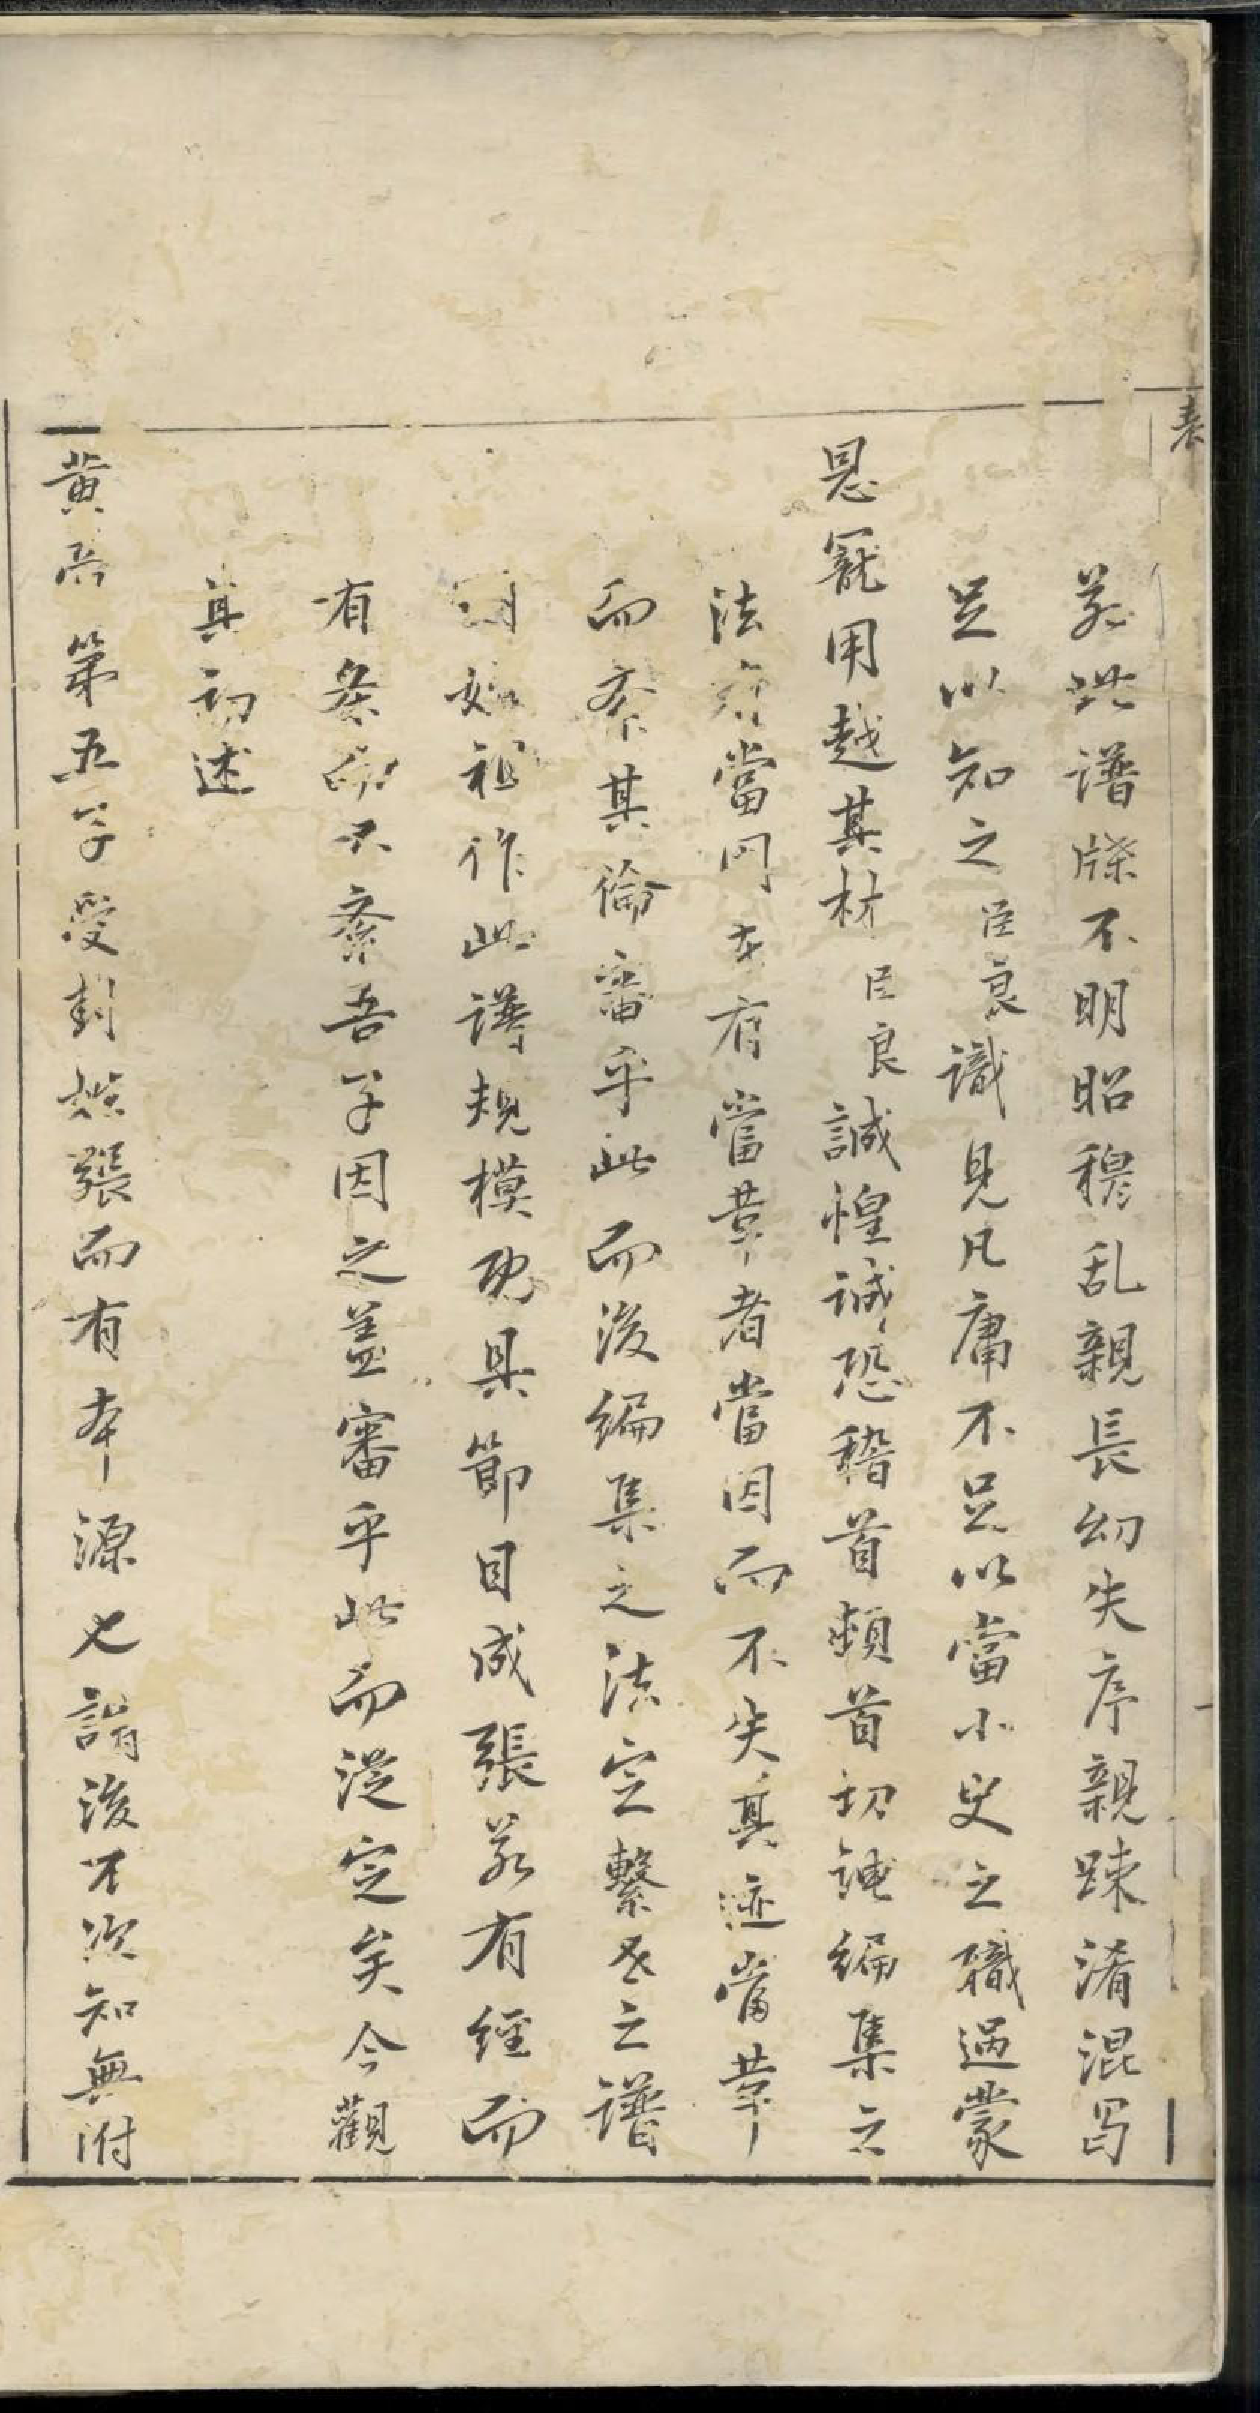 表
若此譜牒不明昭穆乱親長幼失序親踈淆混寫
足以知之臣良識見凡庸不足以當小史之職過蒙
恩寵用越其材臣良誠惶誠恐稽首頓首切謹編集之
法有當同者有當革者當因而不失其迹當革
而不紊其倫審乎此而後編集之法定繫世之譜
明始祖作此譜規模既具節目成張若有經而
有条而不紊吾子因之盖審乎此而從定矣今觀
其初述
黄帝第五子受封姓張而有本源也謂後不次知無附